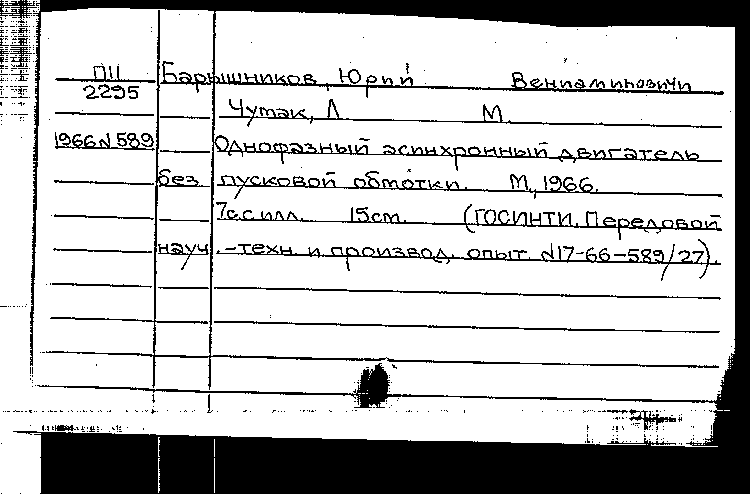 ПII Барышников, Юрий Вениаминовичи
2295
Чумак, Л. М.
1966 N 589 Однофазный асинхронный двигатель
без пусковой обмотки. М, 1966.
7с с илл. 15см. (ГОСИНТИ. Передовой
науч.-техн. и производ. опыт N17-66-589/27).